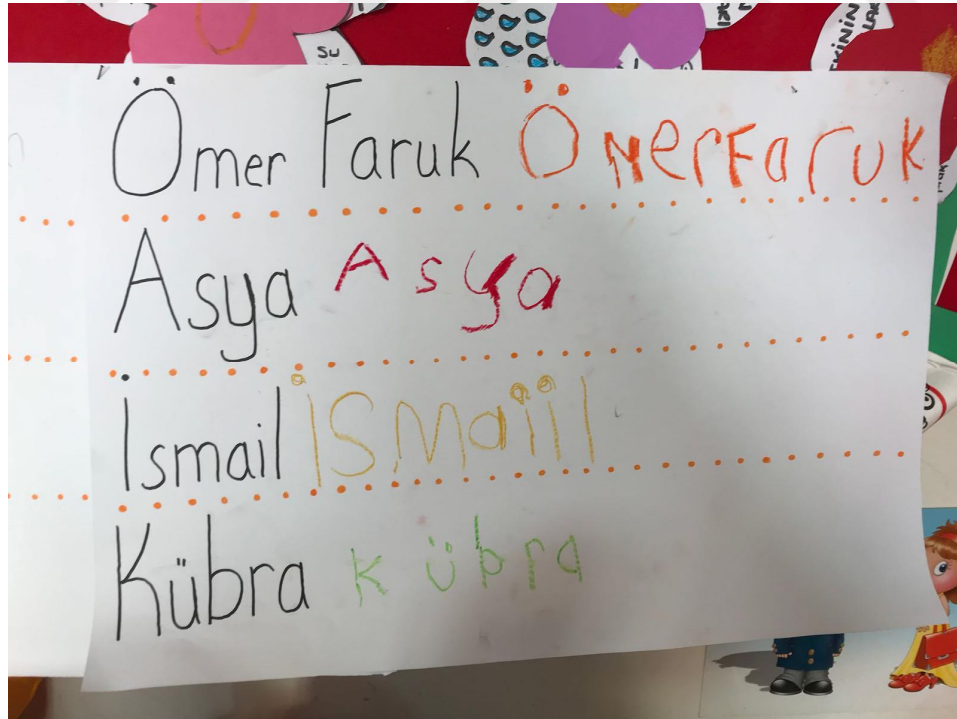 SU
Ömer Faruk ÖMerFaruk
Asya Asya
İsmail İSMaiil
Kübra kübra